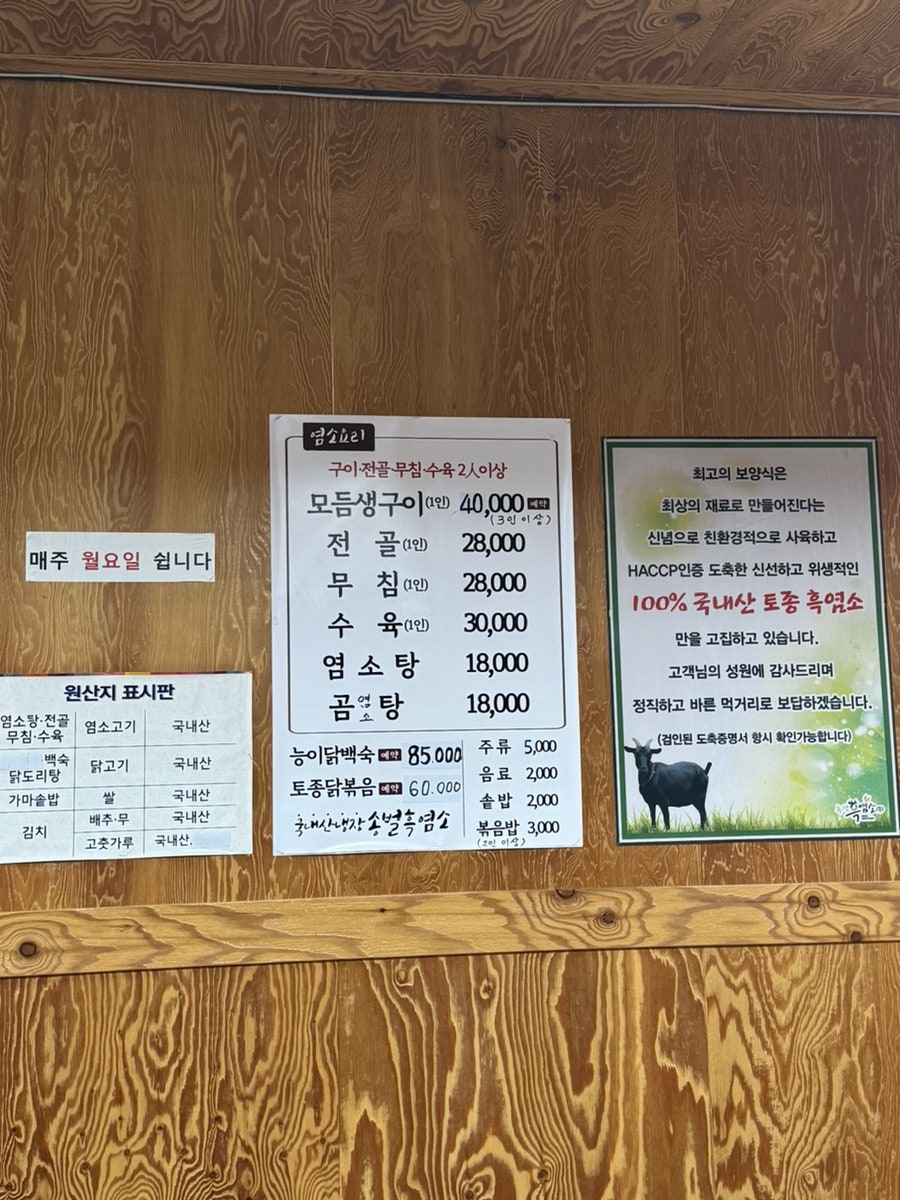 매주 월요일 쉽니다
원산지 표시판
염소탕·전골 무침·수육 염소고기 국내산
백숙 닭도리탕 닭고기 국내산
가마솥밥 쌀 국내산
김치 배추·무 국내산
고춧가루 국내산.
염소요리
구이·전골·무침·수육 2人이상
모듬생구이(1인) 40,000 예약
(3인이상)
전 골(1인) 28,000
무 침(1인) 28,000
수 육(1인) 30,000
염소탕 18,000
곰염소탕 18,000
능이닭백숙 예약 85.000
토종닭볶음 예약 60.000
국내산냉장 소벌흑염소
주류 5,000
음료 2,000
솥밥 2,000
볶음밥 3,000
(2인이상)
최고의 보양식은
최상의 재료로 만들어진다는
신념으로 친환경적으로 사육하고
HACCP인증 도축한 신선하고 위생적인
100% 국내산 토종 흑염소
만을 고집하고 있습니다.
고객님의 성원에 감사드리며
정직하고 바른 먹거리로 보답하겠습니다.
(검인된 도축증명서 항시 확인가능합니다)
흑염소